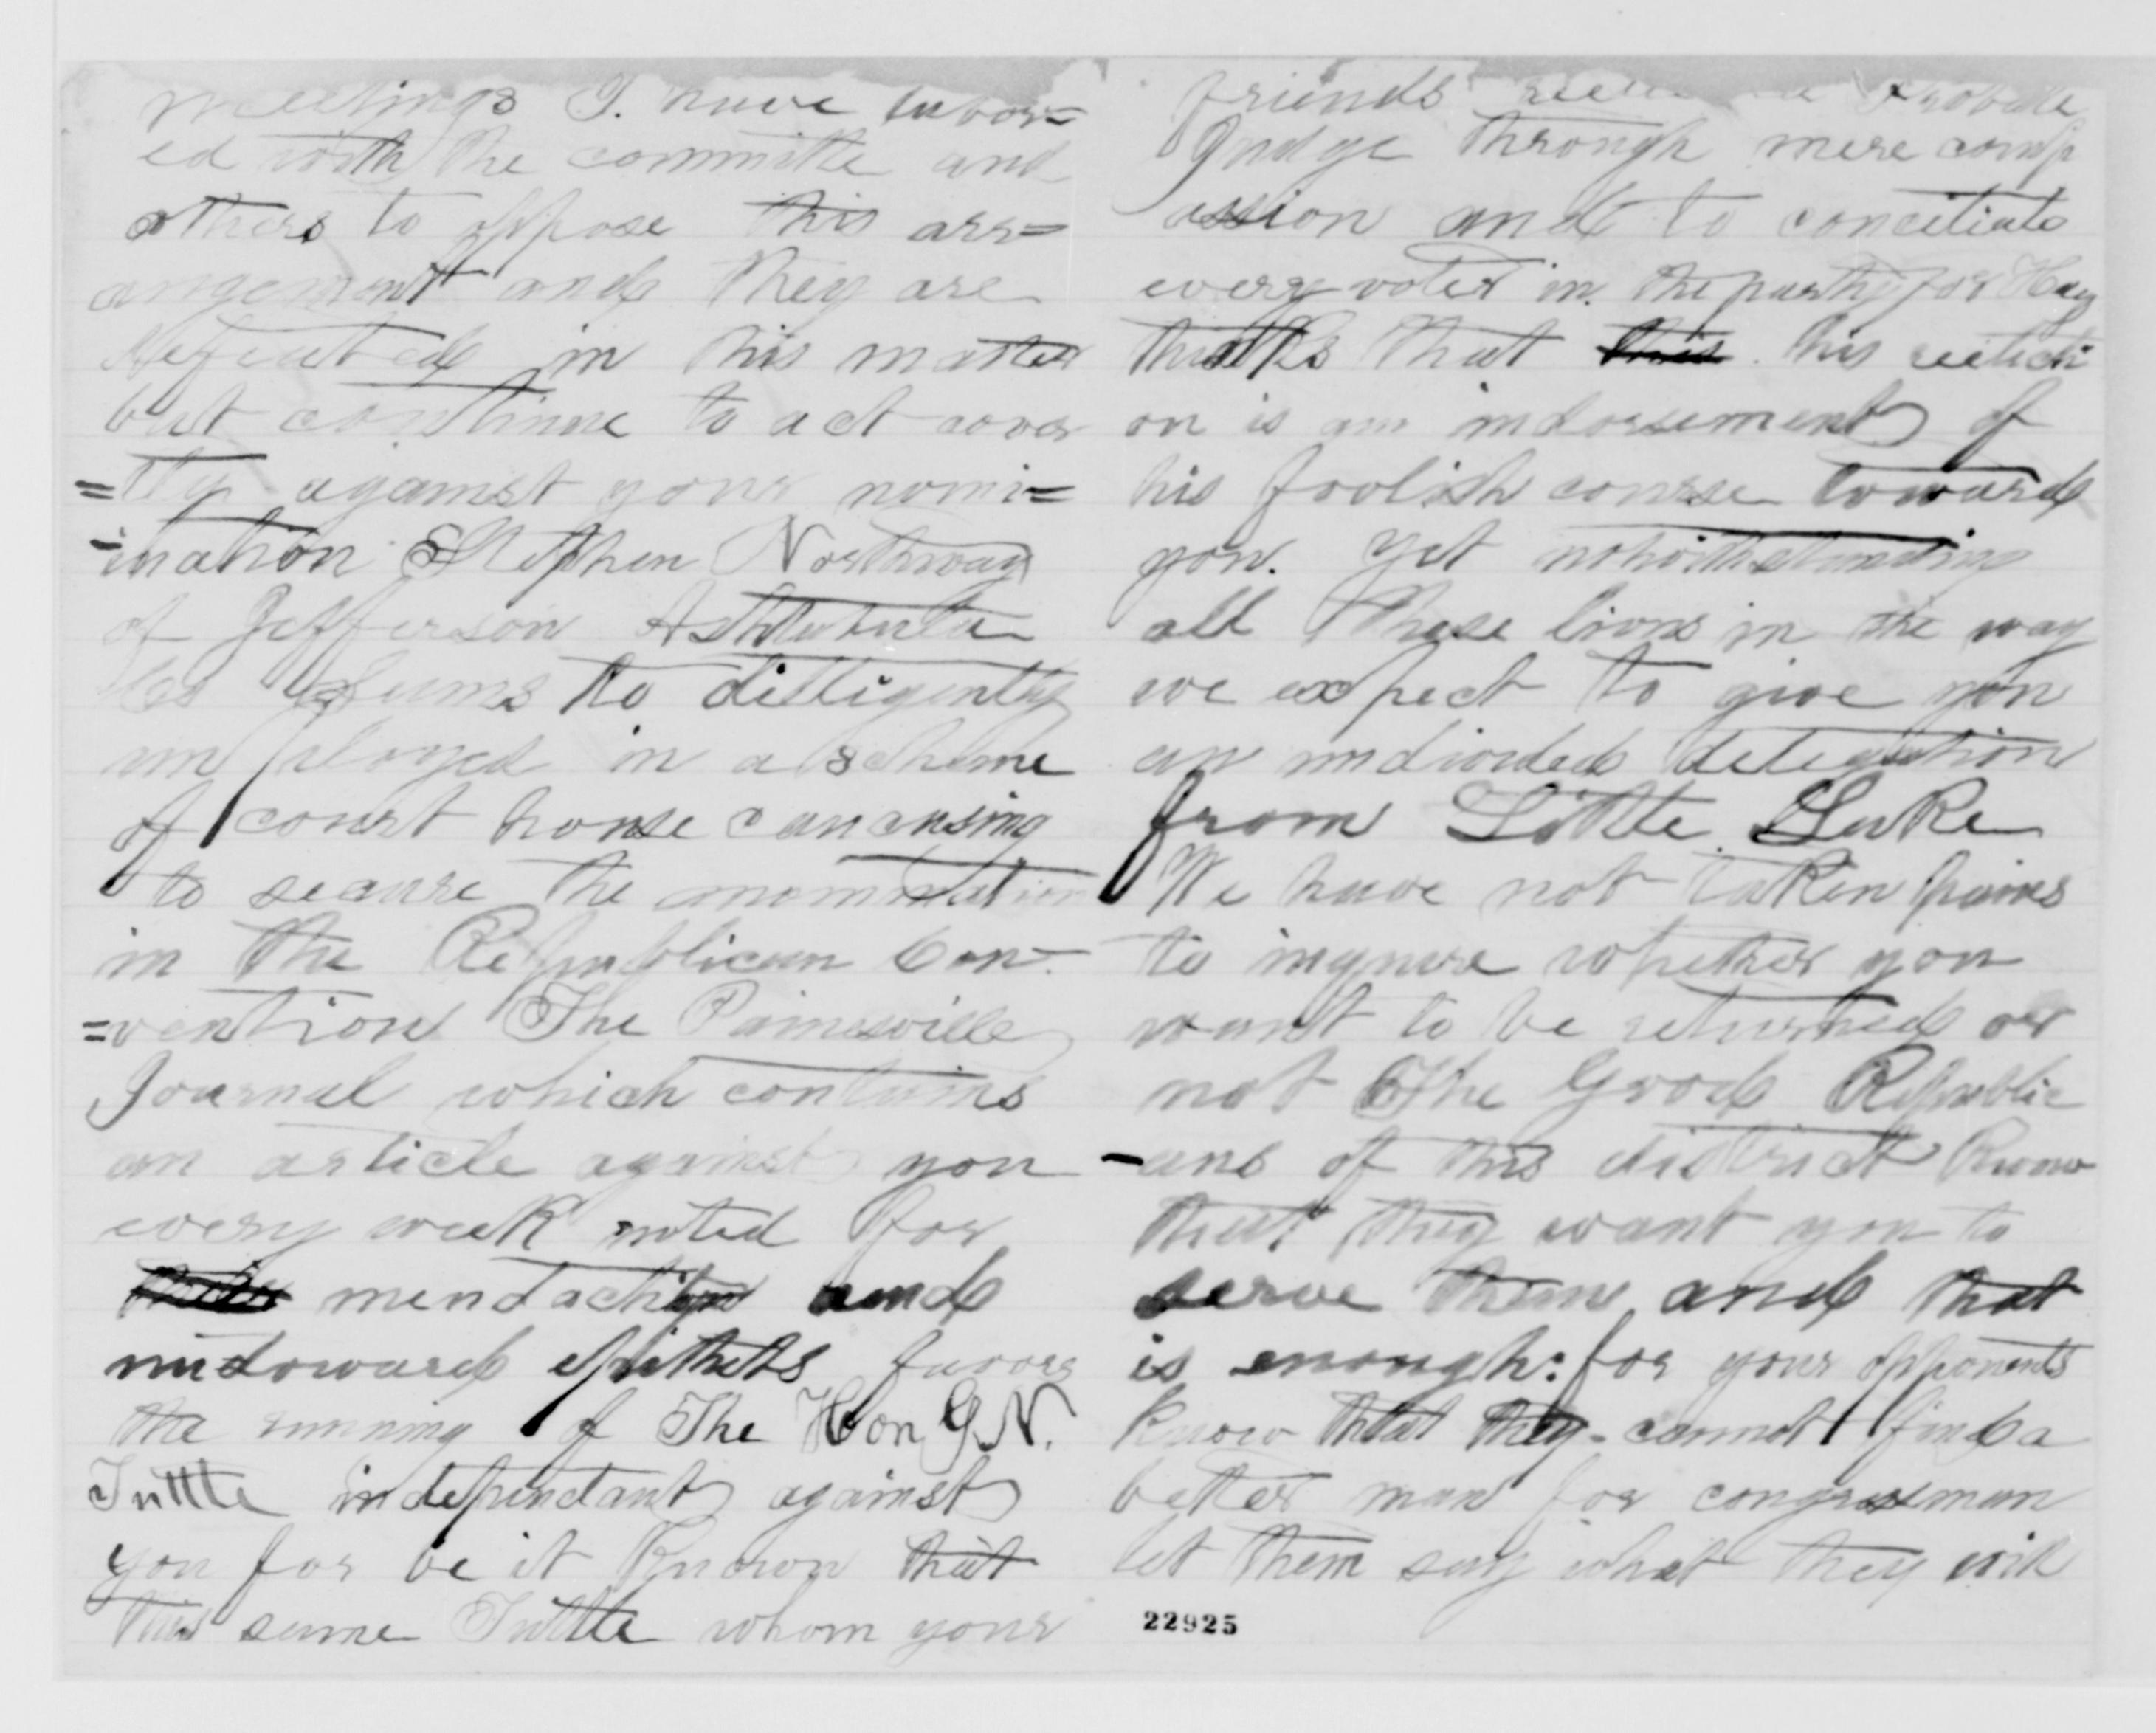 meetings I. have labor=
ed with the committe and
others to oppose this arr=
angement and they are
defeated in this matter
but continue to act cover
=tly against your nomi=
-ination Stephen Northway
of Jefferson Ashtabula
seems to dilligently
employed in a scheme
of court house canvassing
to secure the nomination
in the Republican Con-
=vention The Painesville
Journal which contains
an article against you
every week noted for
mendacity and
untoward epithets favors
the running of The Hon G.N.
Tuttle independant against
you for be it Known that
this same Tuttle whom your
friends Probate
Judge through mere comp
assion and to conciliate
every voter in the party for
thinks that this his electi
on is an indorsement of
his foolish course toward
you. Yet nothwithstanding
all these lions in the way
we expect to give you
an undivided delegation
from Little Lake
We have not taken pains
to inquire whether you
want to be returned or
not The Good Republic
-ans of this district Know
that they want you to
serve them and that
is enough: for your opponents
Know that they cannot find a
better man for congressman
let them say what they will
22925